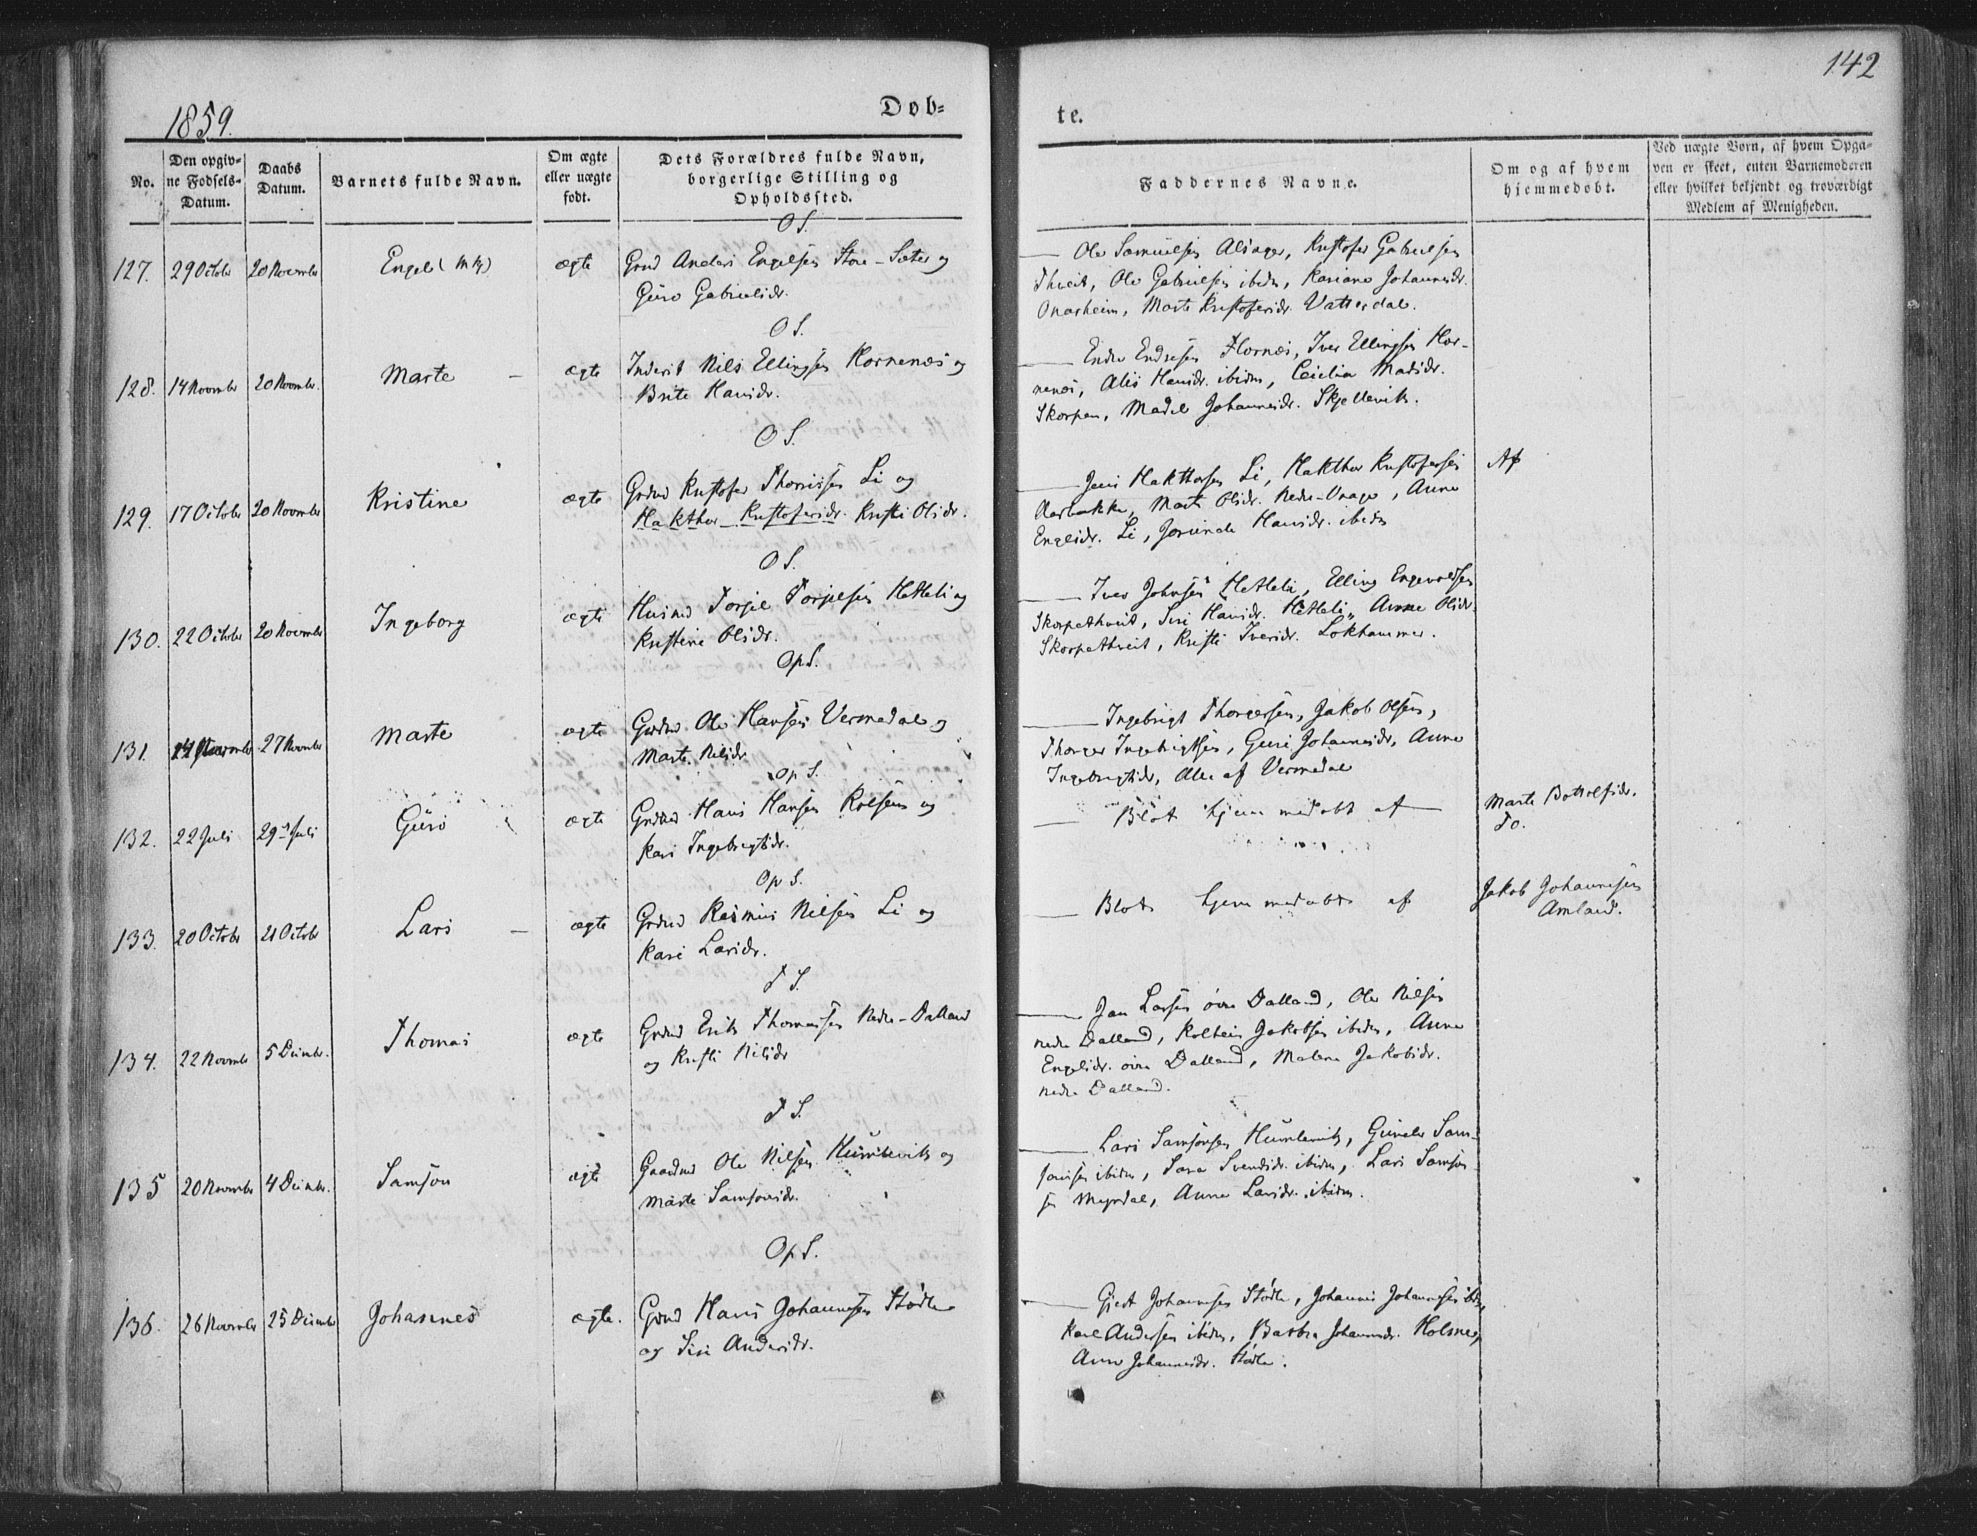 142
1859.
Døb=
te.
No.
Den opgiv=
ne Fødsels=
Datum.
Daabs
Datum.
Barnets fulde Navn.
Om ægte
eller uægte
født.
Dets Forældres fulde Navn,
borgerlige Stilling og
Opholdssted.
Faddernes Navne.
Om og af hvem
hjemmedøbt.
Ved uægte Børn, af hvem Opga=
ven er skeet, enten Barnemoderen
eller hvilket bekjendt og troværdigt
Medlem af Menigheden.
O S.
127. 29 Octobr 20 Novembr Engel ægte Grmd Anders Engelsen Store-Sæter og
Guro Gabrielsdr.
Ole Samuelsen Alsager, Kristofer Gabrielsen
Thveit, Ole Gabrielsen ibidm, Kariane Johannesdr.
Onarheim, Marte Kristofersdr. Vatterdal.
O S.
128. 14 Novembr 20 Novembr. Marte – ægte Inderst Nils Ellingsen Kornenæs og
Brite Hansdr.
Endre Endresen Hornæs, Iver Ellingsen Kor-
nenæs, Alis Hansdr. ibidm, Ceicilia Madsdr.
Skorpen, Madel Johannesdr. Skjellevik.
O S.
129. 17 Octobr 20 Novembr Kristine ægte Grdmd Kristofer Thomissen Li og
Hakthor Kristofersdr. Kristi Olsdr.
Jens Hakthorsen Li, Hakthor Kristofersen
Marte Olsdr. Nedre-Onage, Anna
Engelsdr. Li, Jorunde Hansdr. ibidm
O S.
130. 22 Octobr 20 Novembr Ingeborg ægte Husmd Torjel Torjelsen Hetleli og
Kristine Olsdr.
Iver Johnsen Hetleli, Elling Engevoldsen
Skorpethveit, Siri Hansdr. Hetleli, Anne Olsdr.
Skorpethveit, Kristi Iversdr. Lokhammer.
Op S.
131. 14 Novembr 27 Novembr Marte ægte Grdmd. Ole Hansen Vermedal og
Marte Nilsdr.
Ingebrigt Thorgersen, Jakob Olsen,
Thorger Ingebrigtsen, Guri Johannesdr, Anne
Ingebrigtsdr, Alle af Vermedal
Op S.
132. 22 Juli 29 Juli Guro ægte Grdmd Hans Hansen Rolsens og
Kari Ingebrigtsdr.
Blot hjemmedøbt af
Marte Bottolfsdr.
do.
Op S.
133. 20 Octobr 21 Octobr Lars – ægte Grdmd Rasmus Nilsen Li og
Kari Larsdr.
Blot hjemmedøbt af
Jakob Johannesen
Amland.
T S.
134. 22 Novembr 5 Decmbr. Thomas ægte Grdmd Erik Thomassen Nedre-Dalland
og Kristi Nilsdr
Jan Larsen øvre Dalland, Ole Nilsen
nedre Dalland, Kolbein Jakobsen ibidm, Anna
Engelsdr. øvre Dalland, Malene Jakobsdr.
nedre Dalland.
T S.
135 20 Novembr 4 Decmbr. Samson ægte Gaardmd Ole Nilsen Humlevik og
Marte Samsonsdr.
Lars Samsonsen Humlevik, Gunder Sam-
sonsen ibidm, Sara Svendsdr. ibidm, Lars Samson
sen Myrdal, Anna Larsdr. ibidm.
Op S.
136. 26 Novembr 25 Decembr Johannes ægte. Grmd Hans Johannesen Stødle
og Siri Andersdr.
Gjert Johannesen Stødle, Johannes Johannesen ibm,
Karl Andersen ibidm, Barbra Johannesdr. Holsnes,
Anne Johannesdr. Stødle.